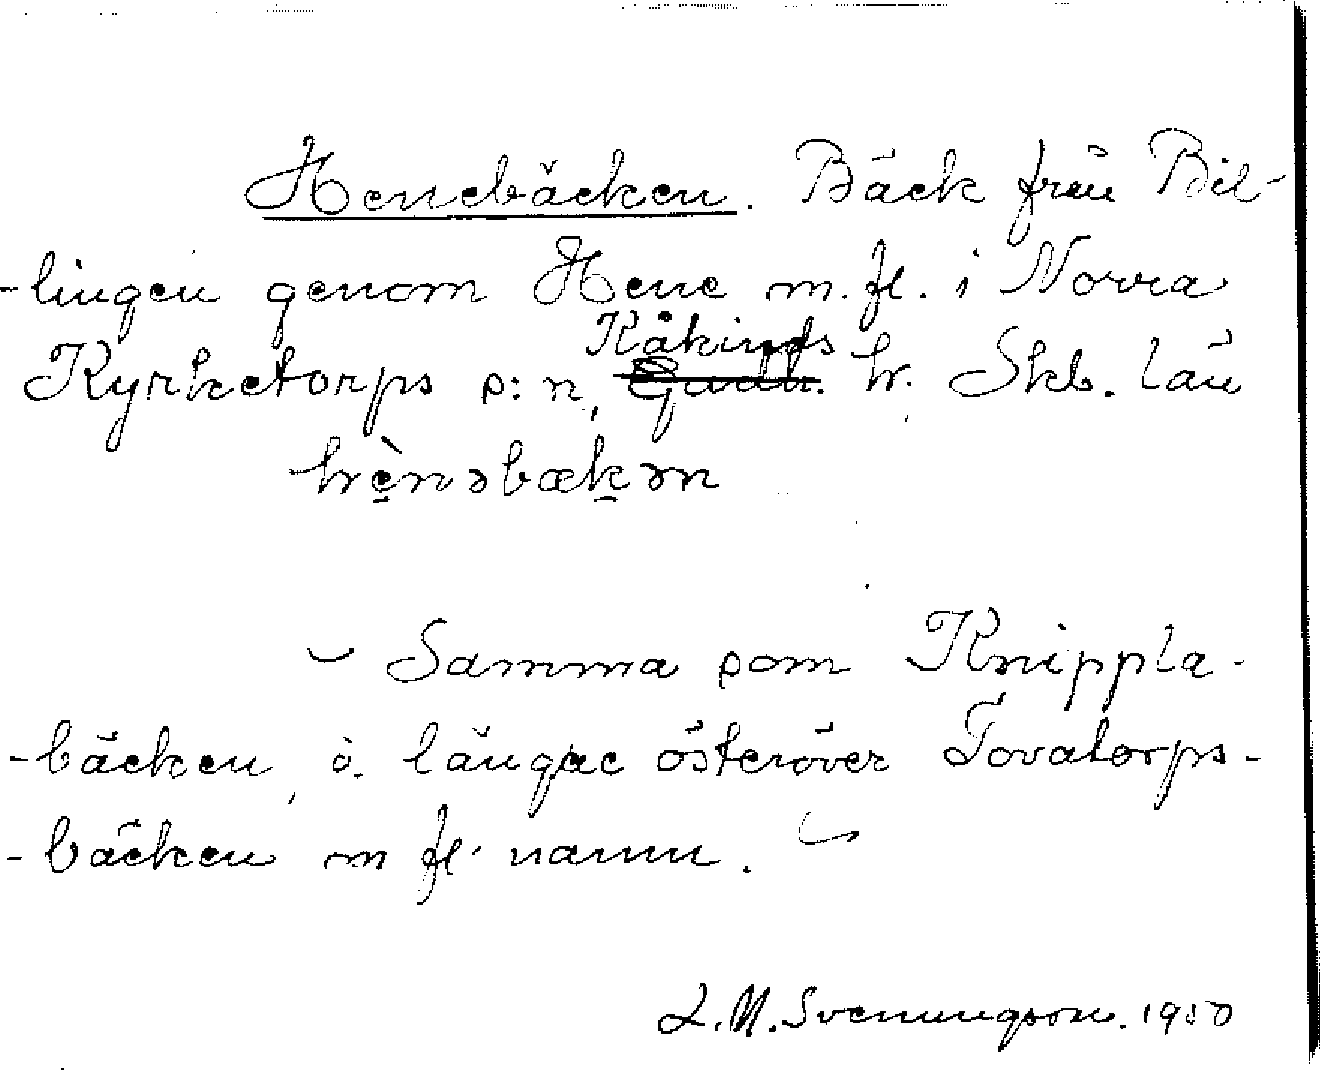 Henebäcken. Bäck från Bil-
-lingen genom Hene m. fl. i Norra
Kåkinds
Kyrketorps s:n, hr. Skb. län
hènəbækən
Samma som Knippla-
-bäcken, o. längre österöver Tovatorps-
-bäcken m fl. namn.
L. M. Svenungsson. 1950